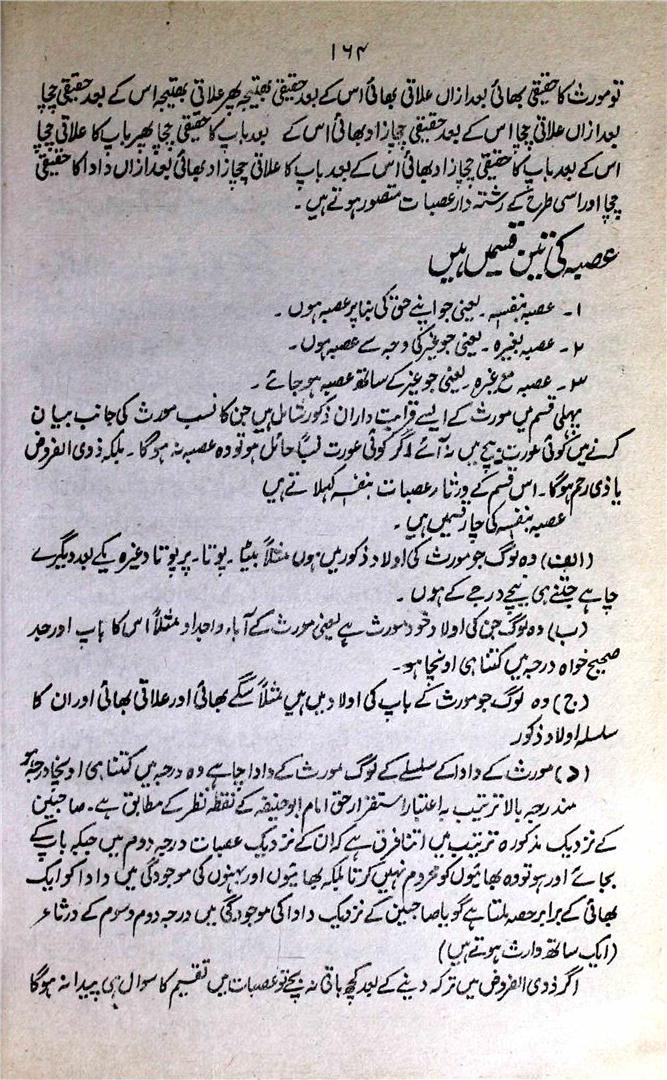 ۱۶۴
تو مورث کا حقیقی بھائی بعد ازاں علاتی بھائی اس کے بعد حقیقی بھتیجہ پھر علاتی بھتیجہ اس کے بعد حقیقی چچا
بعد ازاں علاتی چچا اس کے بعد حقیقی چچا زاد بھائی اس کے بعد باپ کا حقیقی چچا پھر باپ کا علاتی چچا
اس کے بعد باپ کا حقیقی چچا زاد بھائی اس کے بعد باپ کا علاتی چچا زاد بھائی بعد ازاں دادا کا حقیقی
چچا اور اسی طرح کے رشتہ دار عصبات متصور ہوتے ہیں۔
عصبہ کی تین قسمیں ہیں
۱۔ عصبہ بنفسہ۔ یعنی جو اپنے حق کی بنا پر عصبہ ہوں۔
۲۔ عصبہ بغیرہ۔ یعنی جو غیر کی وجہ سے عصبہ ہوں۔
۳۔ عصبہ مع غیرہ۔ یعنی جو غیر کے ساتھ عصبہ ہو جائے۔
پہلی قسم میں مورث کے ایسے قرابت داران ذکور شامل ہیں جن کا نسب مورث کی جانب بیان
کرنے میں کوئی عورت بیچ میں نہ آئے اگر کوئی عورت نسباً حائل ہو تو وہ عصبہ نہ ہو گا۔ بلکہ ذوی الفروض
یا ذی رحم ہوگا۔ اس قسم کے ورثاء عصبات بنفسہ کہلاتے ہیں
عصبہ بنفسہ کی چار قسمیں ہیں۔
(الف) وہ لوگ جو مورث کی اولاد ذکور میں ہوں مثلاً بیٹا۔ پوتا۔ پر پوتا وغیرہ یکے بعد دیگرے
چاہے جتنے ہی نیچے درجے کے ہوں۔
(ب) وہ لوگ جن کی اولاد خود مورث ہے یعنی مورث کے آباء و اجداد مثلاً اس کا باپ اور جد
صحیح خواہ درجہ میں کتنا ہی اونچا ہو۔
(ج) وہ لوگ جو مورث کے باپ کی اولاد میں ہیں مثلاً سگے بھائی اور علاتی بھائی اور ان کا
سلسلہ اولاد ذکور
(د) مورث کے دادا کے سلسلے کے لوگ مورث کے دادا چاہے وہ درجہ میں کتنا ہی اونچا درجہ ہو
مندرجہ بالا ترتیب بہ اعتبار استقرار حق امام ابو حنیفہ کے نقطہ نظر کے مطابق ہے۔ صاحبین
کے نزدیک مذکورہ ترتیب میں اتنا فرق ہے کہ ان کے نزدیک عصبات درجہ دوم میں جبکہ باپ کے
بجائے اور ہو تو وہ بھائیوں کو محروم نہیں کرتا بلکہ بھائیوں اور بہنوں کی موجودگی میں دادا کو ایک
بھائی کے برابر حصہ ملتا ہے گویا صاحبین کے نزدیک دادا کی موجودگی میں درجہ دوم و سوم کے ورثاء
(ایک ساتھ وارث ہوتے ہیں)
اگر ذوی الفروض میں ترکہ دینے کے بعد کچھ باقی نہ بچے تو عصبات میں تقسیم کا سوال ہی پیدا نہ ہوگا